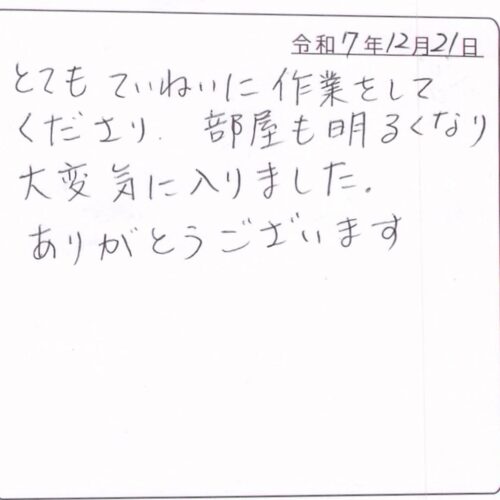 令和7年12月21日
とても ていねいに 作業をして
くださり、部屋も明るくなり
大変気に入りました。
ありがとうございます